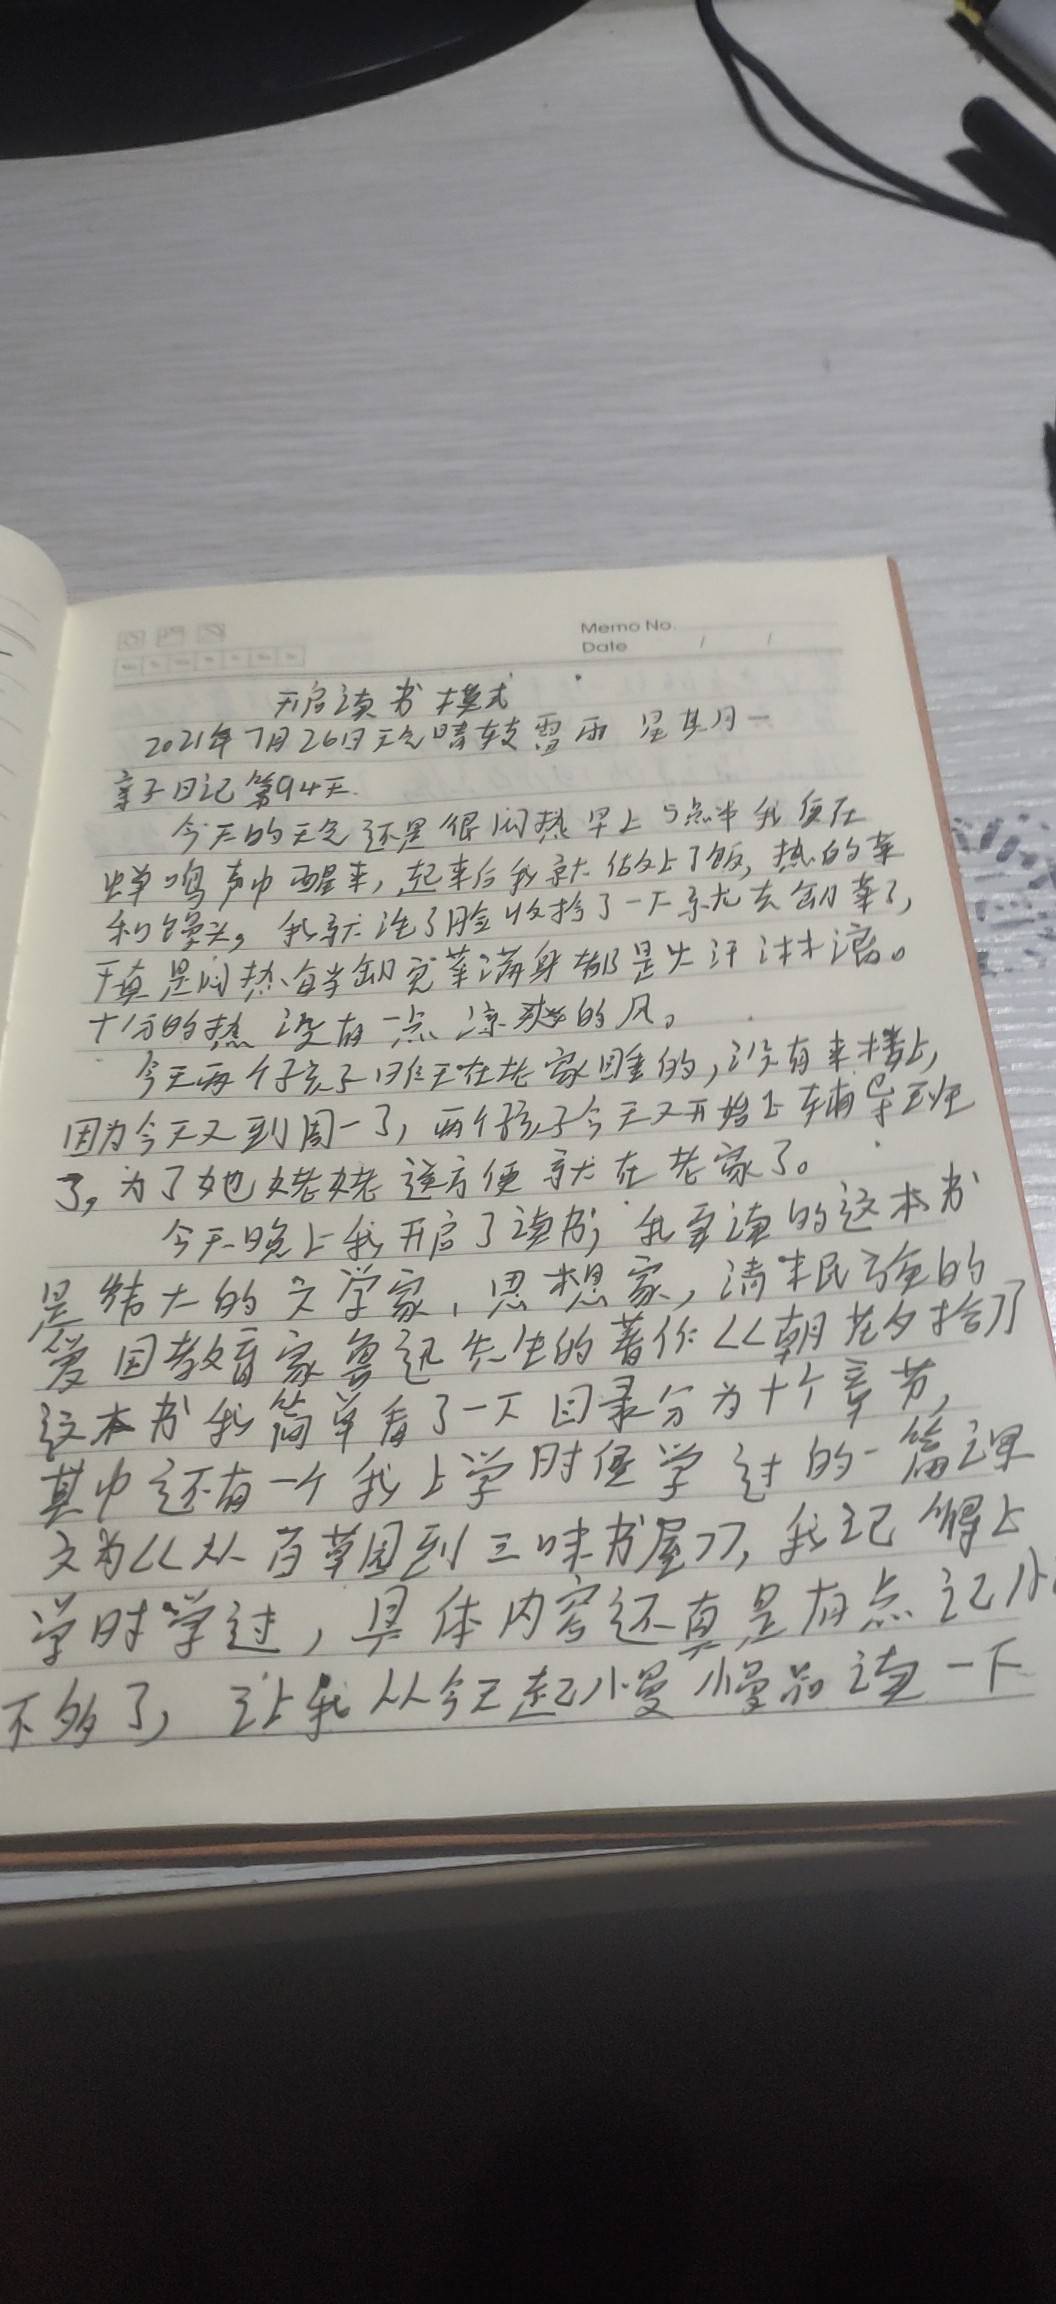 Memo No.
Date / /
开启读书模式
2021年7月26日天气晴转雷雨 星期一
亲子日记第94天.
今天的天气还是很闷热早上5点半我便在
蝉鸣声中醒来，起来后我就做上了饭，热的菜
和馒头。我就洗了脸收拾了一下就去割菜了，
天真是闷热每当割完菜满身都是大汗淋漓。
十分的热没有一点凉爽的风。
今天两个孩子昨天在老家睡的，没有来楼上，
因为今天又到周一了，两个孩子今天又开始上辅导班
了，为了她姥姥送方便就在老家了。
今天晚上我开启了读书，我要读的这本书
是伟大的文学家、思想家，清末民
爱国教育家鲁迅先生的著作《朝花夕拾》
这本书我简单看了一下目录分为十个章节，
其中还有一个我上学时便学过的一篇课
文为《从百草园到三味书屋》，我记得上
学时学过，具体内容还真是有点记忆
不多了，让我从今天起慢慢品读一下